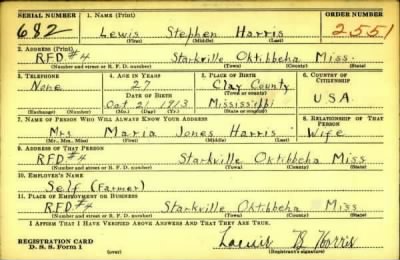 SERIAL NUMBER 1. NAME (Print) ORDER NUMBER
682 Lewis Stephen Harris 2551
(First) (Middle) (Last)
2. ADDRESS (Print)
R.F.D. #4 Starkville Oktibbeha Miss.
(Number and street or R. F. D. number) (Town) (County) (State)
3. TELEPHONE 4. AGE IN YEARS 5. PLACE OF BIRTH 6. COUNTRY OF CITIZENSHIP
None 27 Clay County
DATE OF BIRTH (Town or county)
Oct. 21, 1913 Mississippi U.S.A.
(Exchange) (Number) (Mo.) (Day) (Yr.) (State or country)
7. NAME OF PERSON WHO WILL ALWAYS KNOW YOUR ADDRESS 8. RELATIONSHIP OF THAT PERSON
Mrs. Maria Jones Harris Wife
(Mr., Mrs., Miss) (First) (Middle) (Last)
9. ADDRESS OF THAT PERSON
R.F.D. #4 Starkville Oktibbeha Miss
(Number and street or R. F. D. number) (Town) (County) (State)
10. EMPLOYER'S NAME
Self (Farmer)
11. PLACE OF EMPLOYMENT OR BUSINESS
R.F.D. #4 Starkville Oktibbeha Miss
(Number and street or R. F. D. number) (Town) (County) (State)
I AFFIRM THAT I HAVE VERIFIED ABOVE ANSWERS AND THAT THEY ARE TRUE.
REGISTRATION CARD
D. S. S. Form 1 Harris
(Registrant's signature)